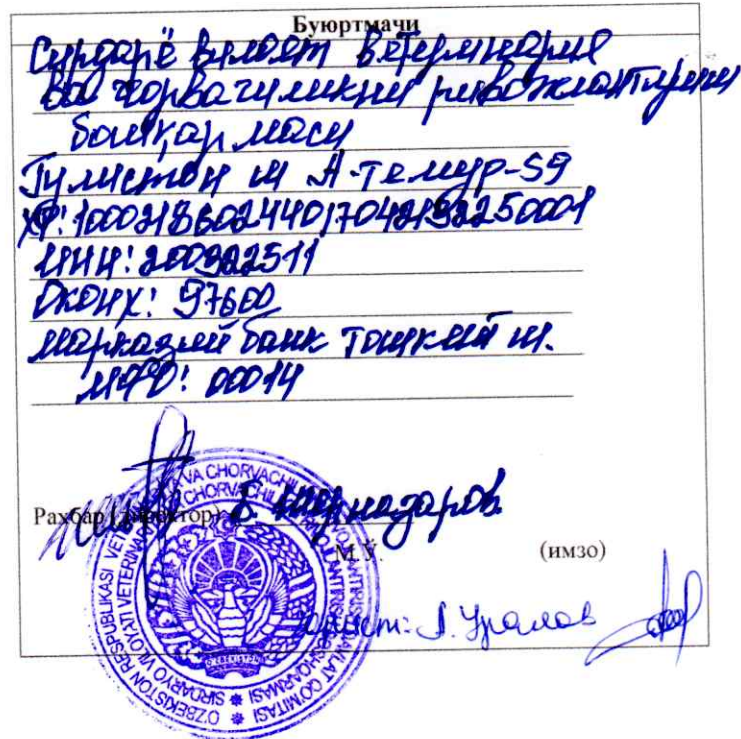 Буюртмачи
Сирдарё вилоят ветеринария
ва чорвачиликни ривожлантириш
бошқармаси
Гулистон ш А-Темур-59
ХР: 100021860244017042192250001
ИНН: 200322511
ОКОНХ: 97600
Марказий банк Тошкент ш.
МФО: 00014
Рахбар (директор) Б. Шерназаров.
М.Ў. (имзо)
Юрист: А. Уралов
O'ZBEKISTON RESPUBLIKASI VETERINA VA CHORVACHIL DAVLAT QO'MITASI
SIRDARYO VILOYATI VETERINA CHORVACHIL BOSHQARMASI